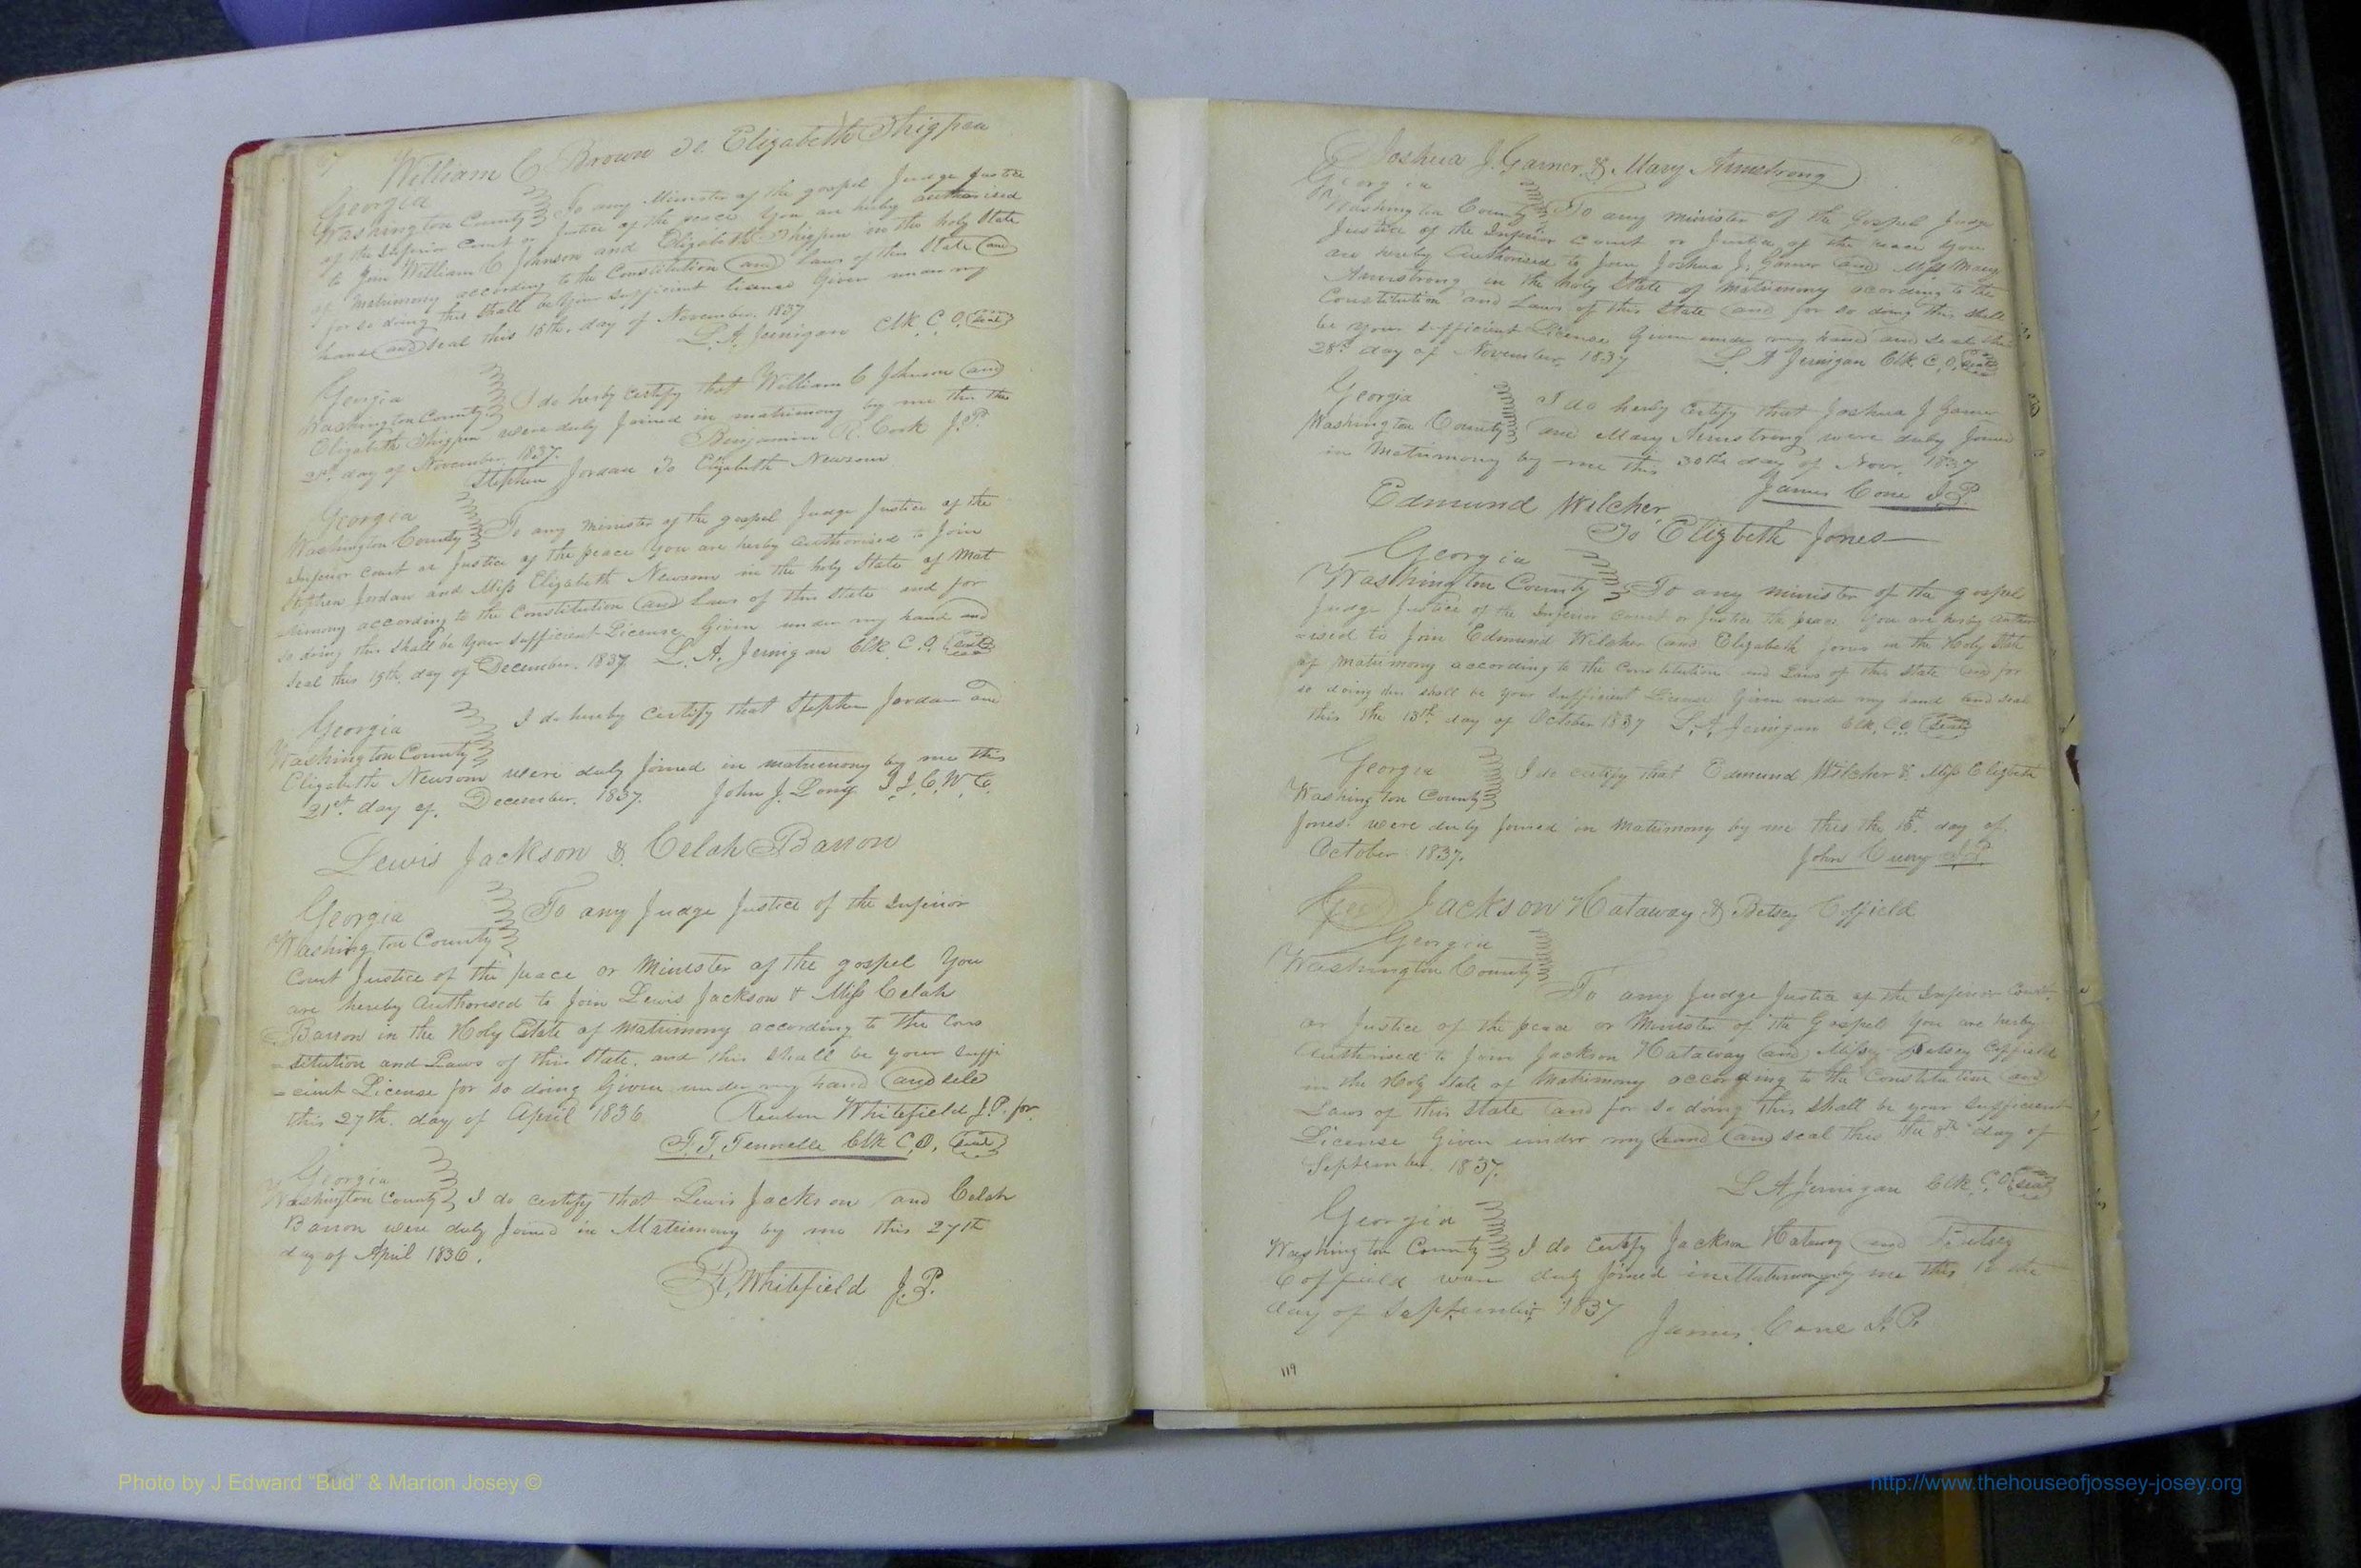 William C Brown to Elizabeth Thigpen
Georgia
Washington County To any Minister of the gospel Judge Justice
of the Inferior Court or Justice of the peace You are herby authorised
to Join William C Johnson and Elizabeth Thigpen in the holy State
of Matrimony according to the Constitution and Laws of this State and
for so doing this shall be your sufficient license Given under my
hand and seal this 15th. day of November 1837
L. A. Jernigan Clk. C. O. Seal
Georgia
Washington County I do herby certify that William C Johnson and
Elizabeth Thigpen were duly Joined in matrimony by me this the
21st day of November 1837. Benjamin R. Cook J.P.
Stephen Jordan To Elizabeth Newsom
Georgia
Washington County To any Minister of the gospel Judge Justice of the
Inferior Court or Justice of the peace You are herby authorised to Join
Stephen Jordan and Miss Elizabeth Newsom in the holy State of Mat
rimony according to the Constitution and Laws of this State and for
so doing this shall be Your sufficient License Given under my hand and
Seal this 19th. day of December. 1837 L. A. Jernigan Clk C. O. Seal
Georgia
I do hereby certify that Stephen Jordan and
Washington County
Elizabeth Newsom were duly Joined in matrimony by me this
21st. day of December. 1837. John J. Long J.I.C.W.C.
Lewis Jackson & Celah Barron
Georgia
To any Judge Justice of the Inferior
Washington County
Court Justice of the peace or Minister of the gospel You
are hereby Authorised to Join Lewis Jackson & Miss Celah
Barron in the Holy Estate of Matrimony according to the Cons
-stitution and Laws of this State. and this shall be your suffi
-cient License for so doing Given under my hand and sele
this 27th. day of April 1836 Reuben Whitefield J.P. for
T. T. Tennelle Clk C. O. Seal
Georgia
Washington County I do certify that Lewis Jackson and Celah
Barron were duly Joined in Matrimony by me this 27th
day of April 1836.
R. Whitefield J. P.
Joshua J. Garner & Mary Armstrong
Georgia
Washington County To any minister of the Gospel Judge
Justice of the Inferior Court or Justice of the peace You
are hereby Authorised to Join Joshua J. Garner and Miss Mary
Armstrong in the holy State of Matrimony acording to the
Constitution and Laws of this State and for so doing this shall
be your sufficient License Given under my hand and seale this
28th day of November 1837 L. A Jernigan Clk C. O. Seal
Georgia
I do herby Certify that Joshua J Garner
Washington County and Mary Armstrong were duly Joined
in Matrimony by me this 30th day of Novr. 1837
James Cone J.P.
Edmund Wilcher
To Elizbeth Jones
Georgia
Washington County To any minister of the gospel
Judge Justice of the Inferior Court or Justice the peace You are herby autho
-rised to Join Edmund Wilcher and Elizabeth Jones in the Holy State
of Matrimony according to the Constitution and Laws of this State and for
so doing this shall be your sufficient License Given under my hand and seal
this the 13th day of October 1837 L. A. Jernigan Clk. C. O. Seal
Georgia
I do certify that Edmund Wilcher & Miss Elizbeth
Washington County
Jones were duly Joined in Matrimony by me this the 15th. day of
October 1837.
John Curry J.P.
Jackson Hataway & Betsey Coffield
Georgia
Washington County
To any Judge Justice of the Inferior Court.
or Justice of the peace or Minister of the Gospel You are herby
Authorised to Join Jackson Hataway and Missy Betsey Coffield
in the Holy State of Matrimony according to the Constitution and
Laws of this State and for so doing this shall be your sufficient
License Given under my hand and seal this the 8th day of
September. 1837.
L A Jernigan Clk C. O. Seal
Georgia
Washington County I do Certify Jackson Hataway and Betsey
Coffield were duly Joined in Matrimony by me this the
day of September 1837
James Cone J. P.
119
Photo by J Edward “Bud” & Marion Josey ©
http://www.thehouseofjossey-josey.org